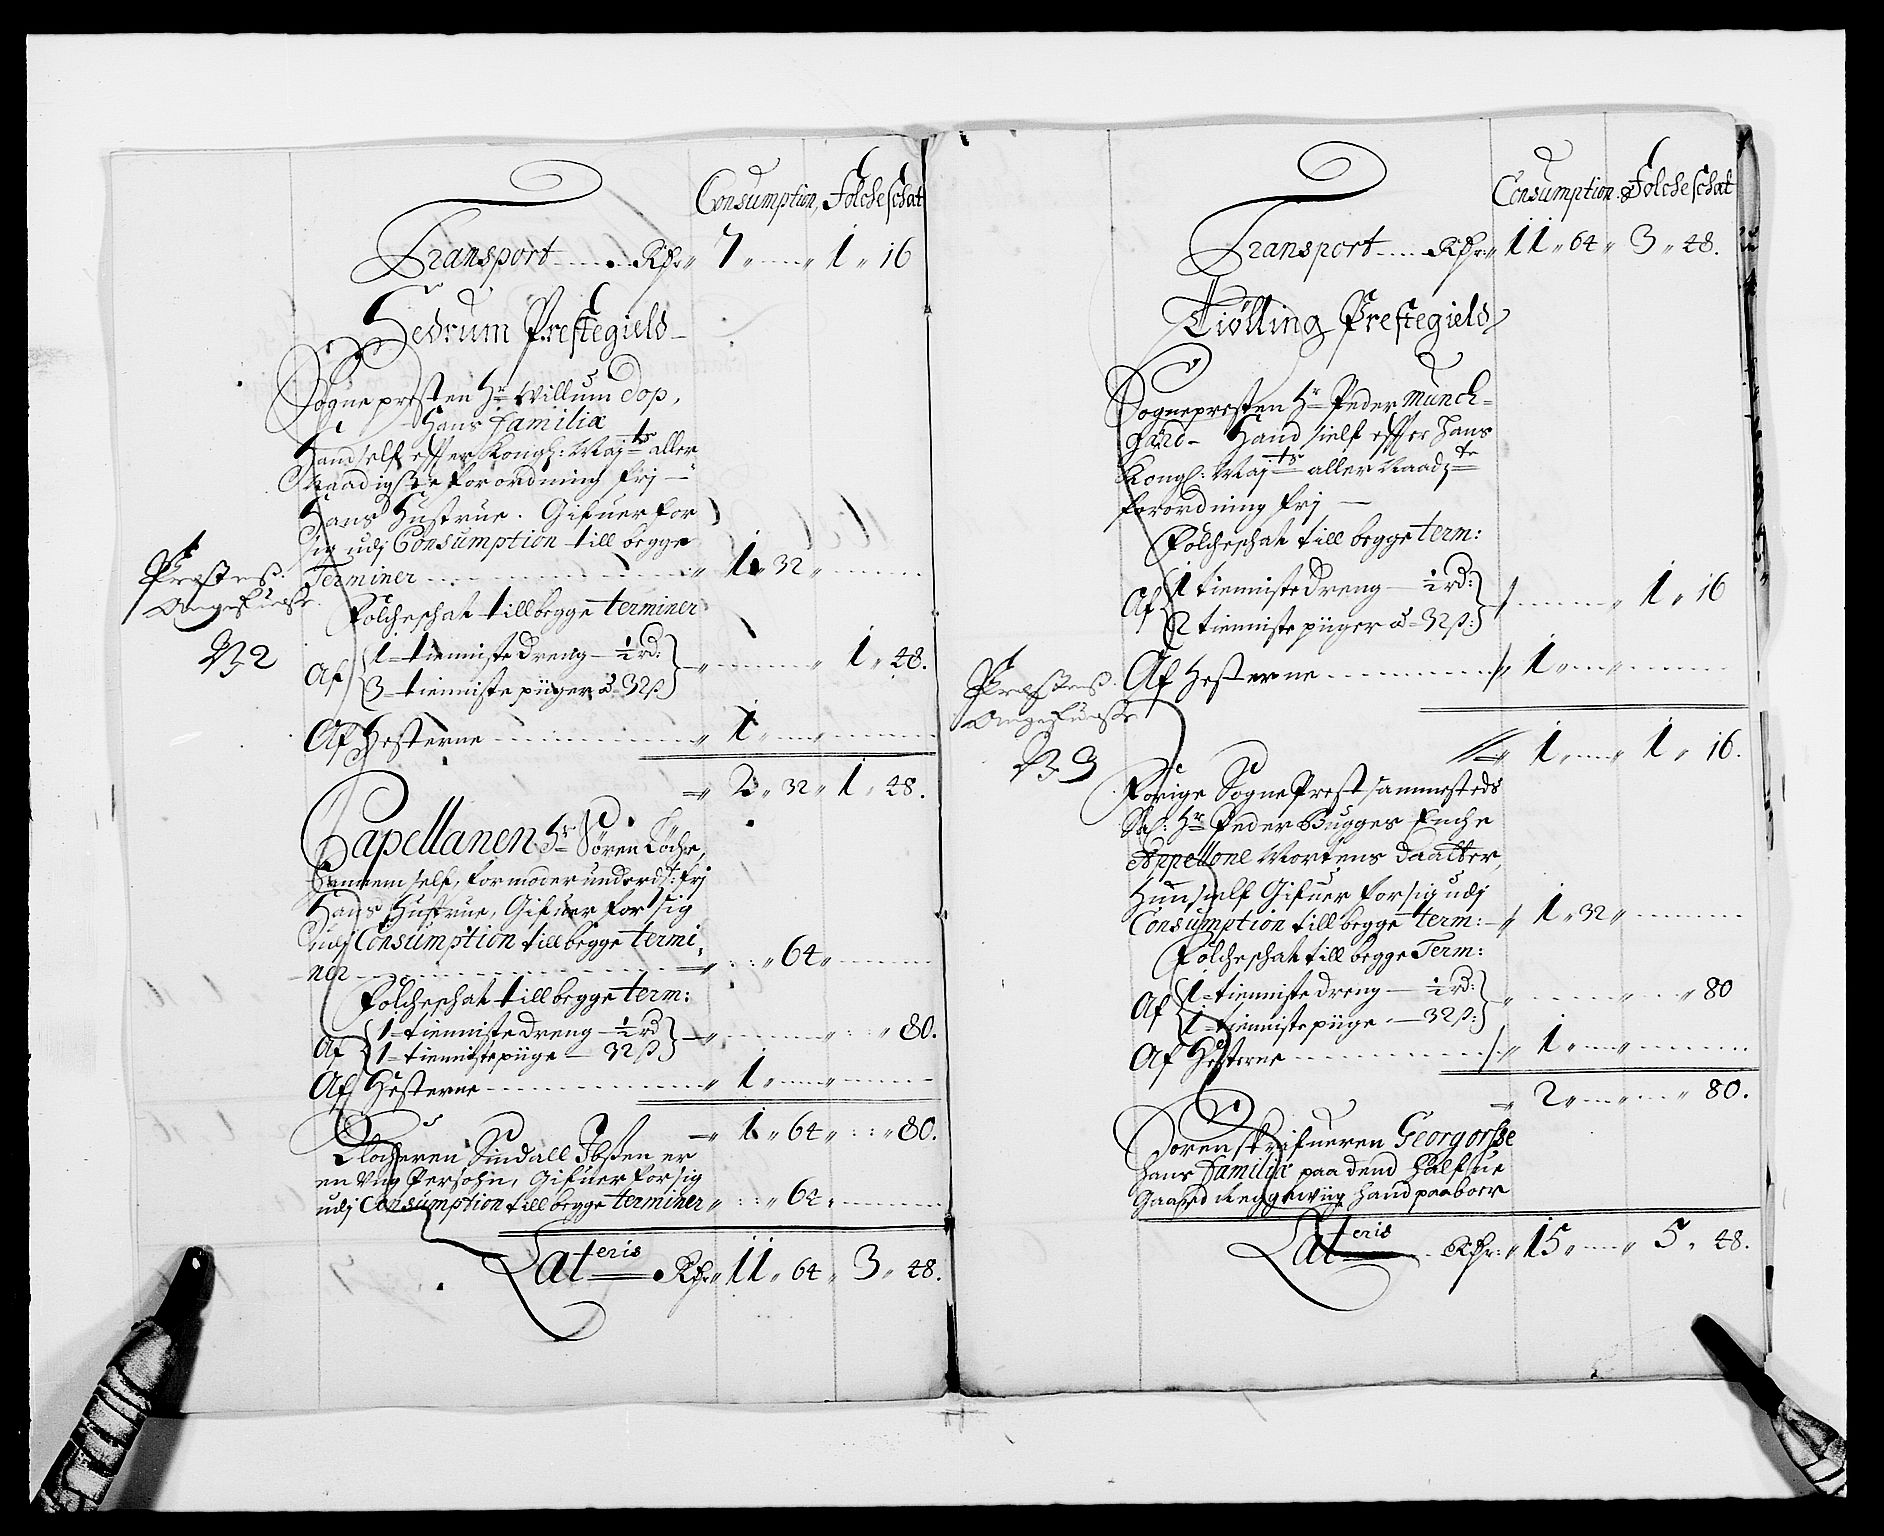 Consumption, Folcheschat
Transport Rdr 7 1 16
Hedrum Prestegield
Sognepresten Hr Willum Dop,
Hans Familiæ
Hand self effter Kongl: Maj:ts aller
Naadigste forordning frj
Hans Hustrue. Gifuer for
sig udj Consumption till begge
Terminer 1 32
Præstens
Angifuelse
N 2
Folcheschat till begge terminer
Af 1 tienniste dreng 1/2 rd:
3 tienniste piiger à 32 ß 1 48.
Af Hesterne 1
2 32 1 48.
Capellanen Hr Søren Loche,
hannem self, formoder underd: frj
Hans Hustrue, Gifuer for sig
udj Consumption till begge termi
ner 64
Folcheschat till begge term:
Af 1 tienniste dreng 1/2 rd
1 tienniste piige 32 ß 80.
Af Hesterne 1
1 64 80.
Klocheren Sindall Ibsen er
en Ung Persohn, Gifuer for sig
udj Consumption till begge terminer 64
Lateris Rdr 11 64 3 48.
Consumption Folcheschat
Transport Rdr 11 64 3 48.
Tiølling Prestegield
Sognepresten Hr Peder Munch-
gard Hand sielf effter Hans
Kongl: Maj:ts aller Naadigste
forordning frj
Folcheschat till begge term:
Af 1 tienniste dreng 1/2 rd:
2 tienniste piiger à 32 ß: 1 16
Af Hesterne 1
Præstens
Angifuelse
N 3
1 1 16.
Forige Sogne Prest sammesteds
Sal: Hr Peder Bugges Enche
Appellone Mortens Daatter,
Hun sielf Gifuer for sig udj
Consumption till begge term: 1 32
Folcheschat till begge Term:
Af 1 tienniste dreng 1/2 rd:
1 tienniste piige 32 ß: 80
Af Hesterne 1
2 80.
Sorenskrifueren Georg
hans Familiæ paa dend halfue
Gaard hand paaboer
Lateris Rdr: 15 5 48.